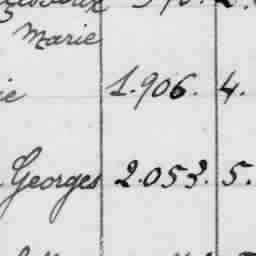 Marie
1.906. 4.
Georges 2.053. 5.